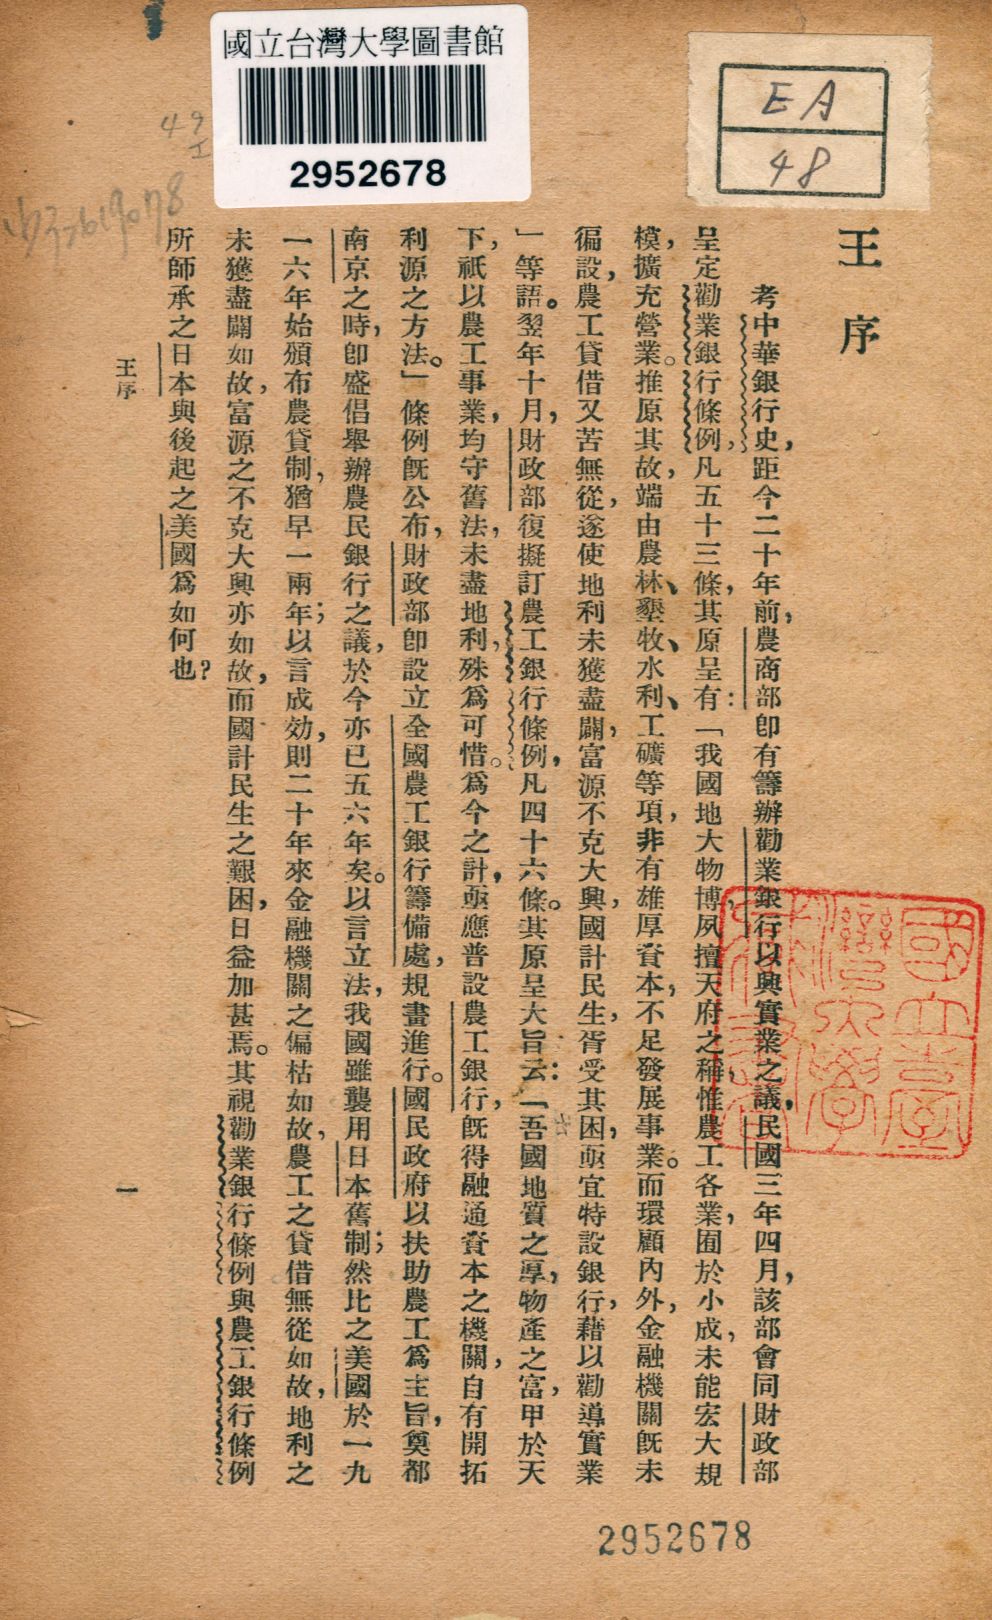 國立台灣大學圖書館
2952678
EA
48
王序
考中華銀行史，距今二十年前，農商部卽有籌辦勸業銀行以興實業之議，民國三年四月，該部會同財政部
呈定勸業銀行條例，凡五十三條，其原呈有：「我國地大物博，夙擅天府之稱，惟農工各業，囿於小成，未能宏大規
模，擴充營業。推原其故，端由農林、墾牧、水利、工礦等項，非有雄厚資本，不足發展事業。而環顧內外，金融機關旣未
徧設，農工貸借又苦無從，遂使地利未獲盡闢，富源不克大興，國計民生，胥受其困，亟宜特設銀行，藉以勸導實業
」等語。翌年十月，財政部復擬訂農工銀行條例，凡四十六條。其原呈大旨云：「吾國地質之厚，物產之富，甲於天
下，祇以農工事業，均守舊法，未盡地利，殊爲可惜。爲今之計，亟應普設農工銀行，旣得融通資本之機關，自有開拓
利源之方法。」條例旣公布，財政部卽設立全國農工銀行籌備處，規畫進行。國民政府以扶助農工爲主旨，奠都
南京之時，卽盛倡舉辦農民銀行之議，於今亦已五六年矣。以言立法，我國雖襲用日本舊制；然比之美國於一九
一六年始頒布農貸制，猶早一兩年；以言成効，則二十年來金融機關之偏枯如故，農工之貸借無從如故，地利之
未獲盡闢如故，富源之不克大興亦如故，而國計民生之艱困，日益加甚焉。其視勸業銀行條例與農工銀行條例
所師承之日本與後起之美國爲如何也？
王序
一
國立臺灣大學圖書
2952678